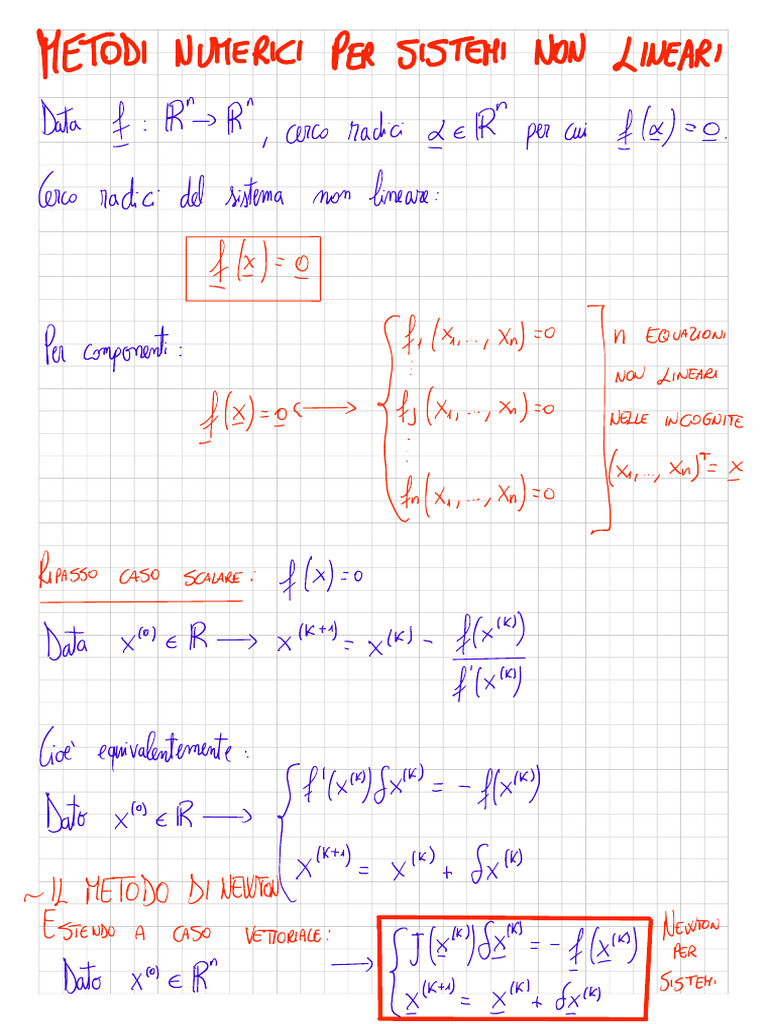 METODI NUMERICI PER SISTEMI NON LINEARI
Data f : ℝⁿ → ℝⁿ, cerco radici α ∈ ℝⁿ per cui f(α) = 0.
Cerco radici del sistema non lineare:
f(x) = 0
Per componenti:
f(x) = 0 ⟶ { f₁(x₁,..., xₙ) = 0
⋮
fⱼ(x₁,..., xₙ) = 0
⋮
fₙ(x₁,..., xₙ) = 0
] n EQUAZIONI
NON LINEARI
NELLE INCOGNITE
(x₁,..., xₙ)ᵀ = x
RIPASSO CASO SCALARE: f(x) = 0
Data x⁽⁰⁾ ∈ ℝ ⟶ x⁽ᴷ⁺¹⁾ = x⁽ᴷ⁾ - f(x⁽ᴷ⁾) / f'(x⁽ᴷ⁾)
Cioè equivalentemente:
Dato x⁽⁰⁾ ∈ ℝ ⟶ { f'(x⁽ᴷ⁾) δx⁽ᴷ⁾ = - f(x⁽ᴷ⁾)
x⁽ᴷ⁺¹⁾ = x⁽ᴷ⁾ + δx⁽ᴷ⁾
~ IL METODO DI NEWTON
ESTENDO A CASO VETTORIALE:
Dato x⁽⁰⁾ ∈ ℝⁿ ⟶ { J(x⁽ᴷ⁾) δx⁽ᴷ⁾ = - f(x⁽ᴷ⁾)
x⁽ᴷ⁺¹⁾ = x⁽ᴷ⁾ + δx⁽ᴷ⁾
NEWTON
PER
SISTEMI